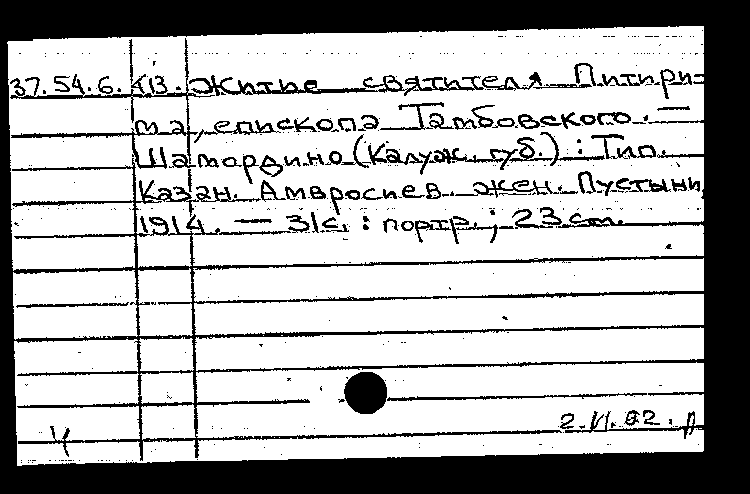 37.54.6.413. Житие святителя Питири-
ма, епископа Тамбовского. —
Шамордино (Калуж. губ.) : Тип.
Казан. Амвросиев. жен. Пустыни,
1914. — 31с. : портр. ; 23 cm.
2.VI.92.
Ч